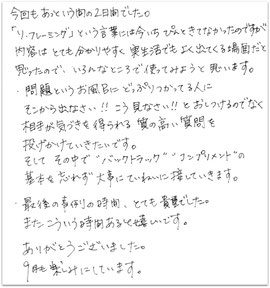 今回もあっという間の2日間でした。
「リ・フレーミング」という言葉には今いち ぴんときてなかったのですが
内容は とても分かりやすく 実生活でもよく出てくる場面だと
思ったので、いろんなところで使ってみようと思います。
・問題というお風呂に どっぷりつかってる人に
そこから出なさい!! こう見なさい!! とおしつけるのでなく
相手が気づきを得られる 質の高い質問を
投げかけていきたいです。
そして その中で "バックトラック" "コンプリメント"の
基本も忘れず 大事に ていねいに接していきます。
・最後の事例の時間、とても貴重でした。
またこういう時間あると嬉しいです。
ありがとうございました。
9月も楽しみにしています。